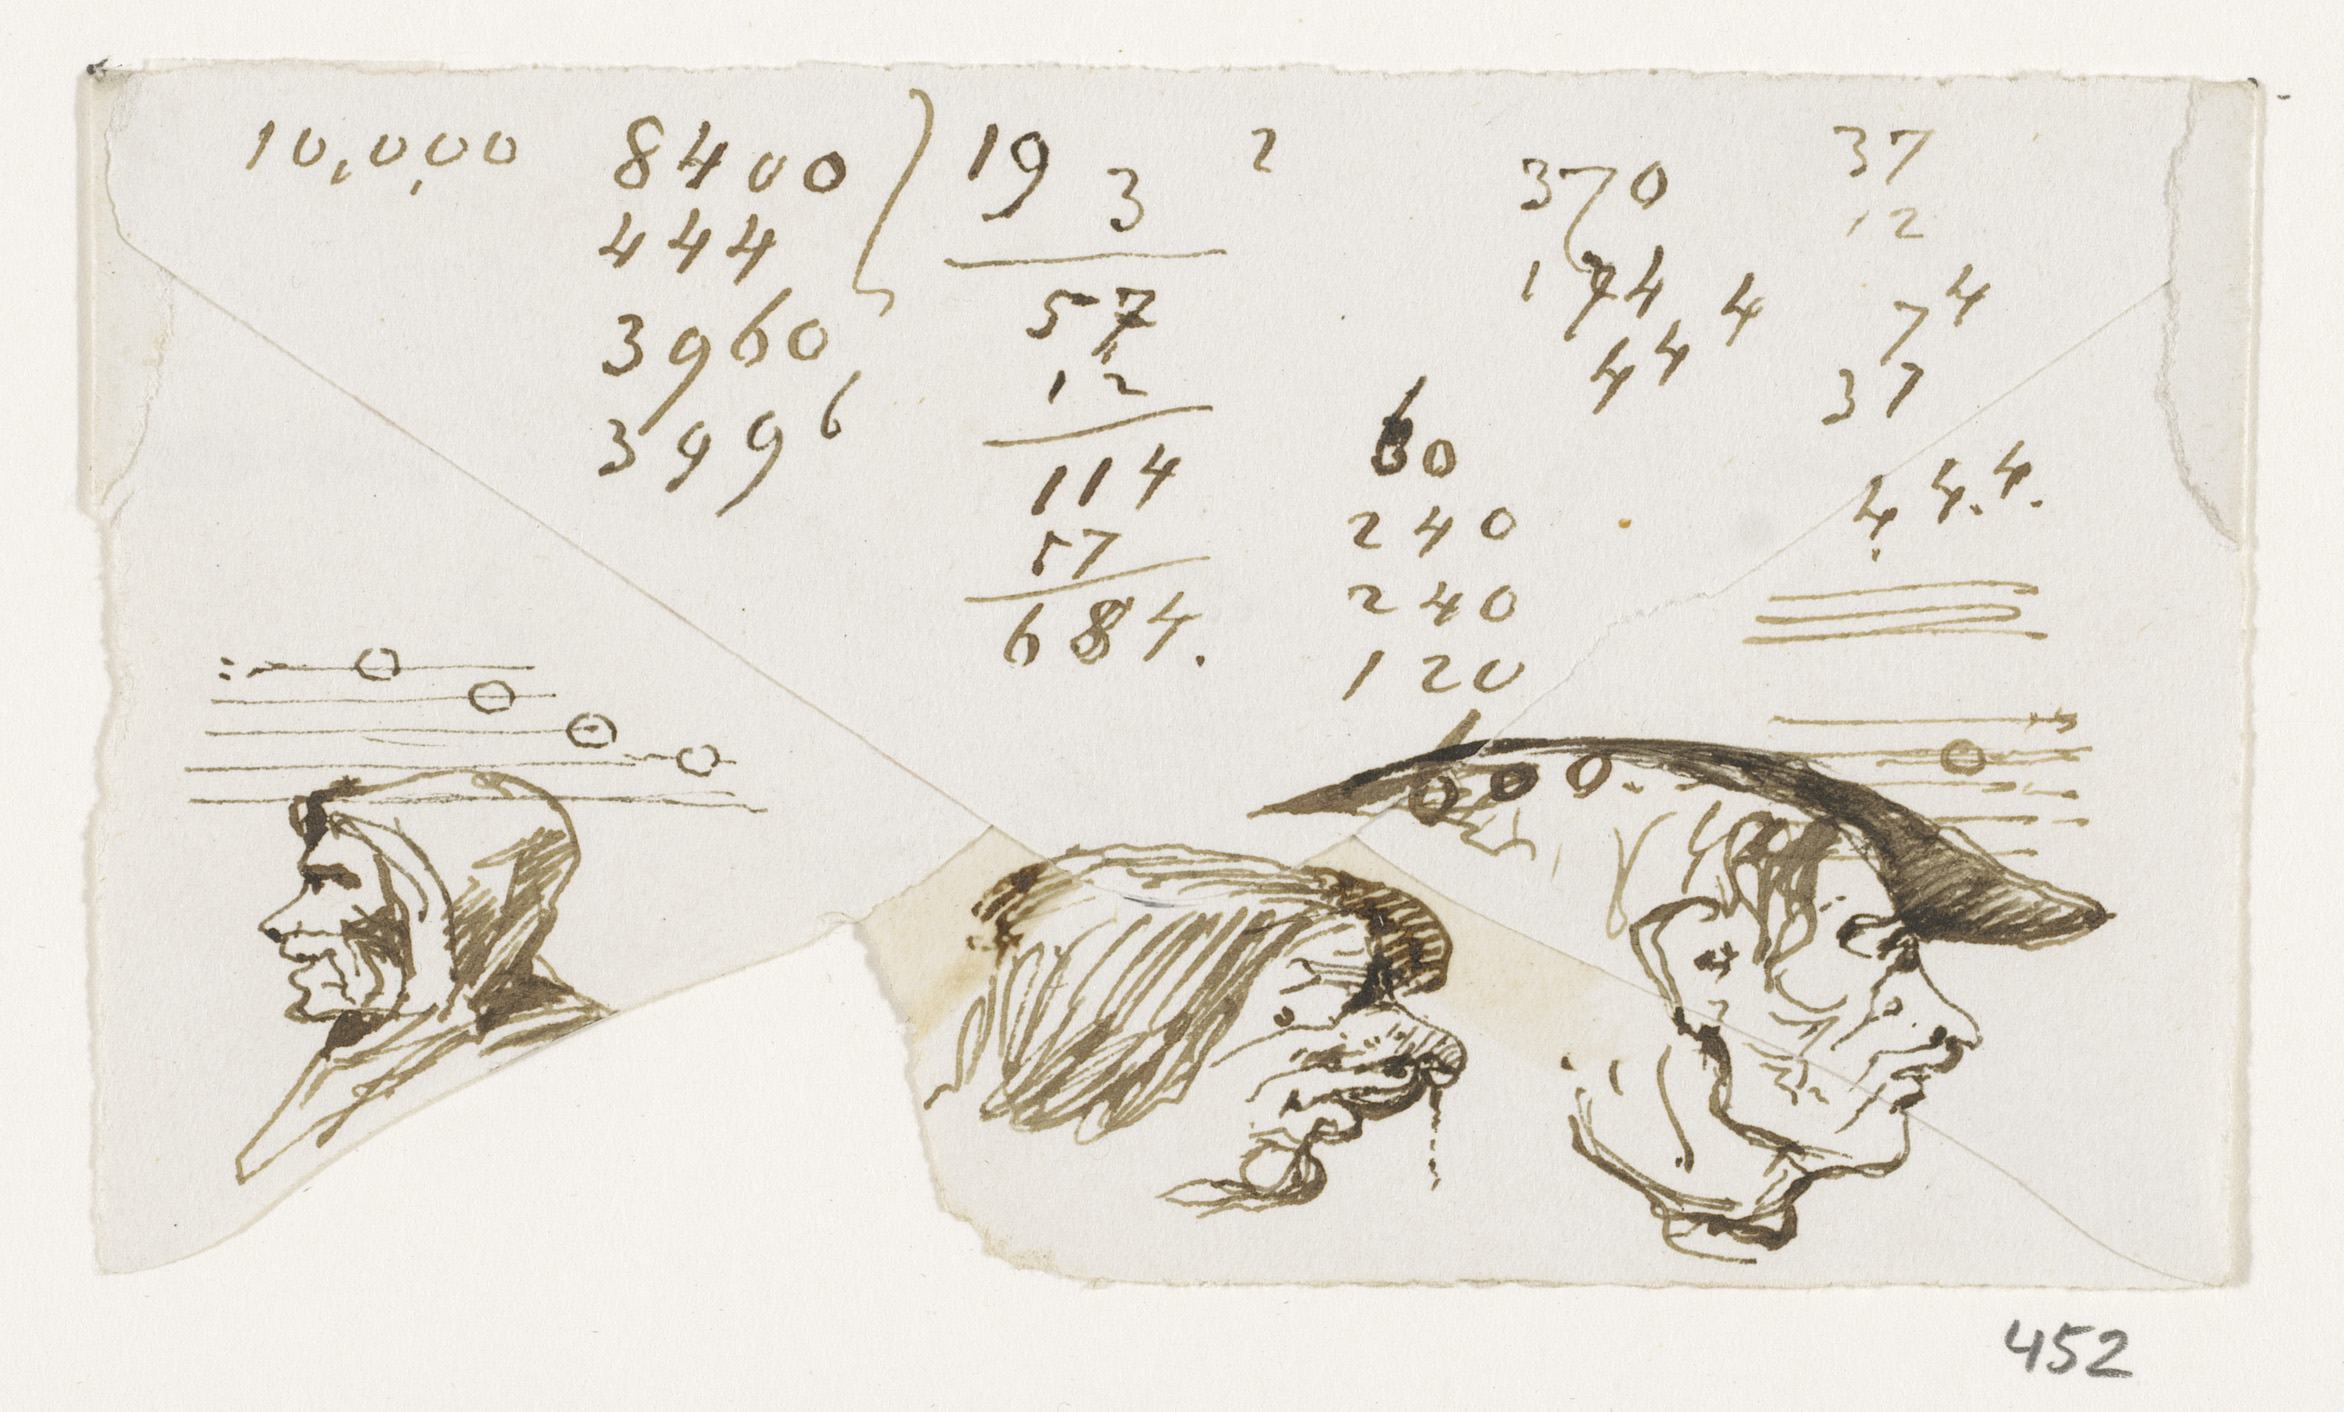 10,000
8400
444
3960
3996
19
3
57
12
114
57
684.
2
60
240
240
120
370
4
44
37
12
74
37
4.4.4.
452